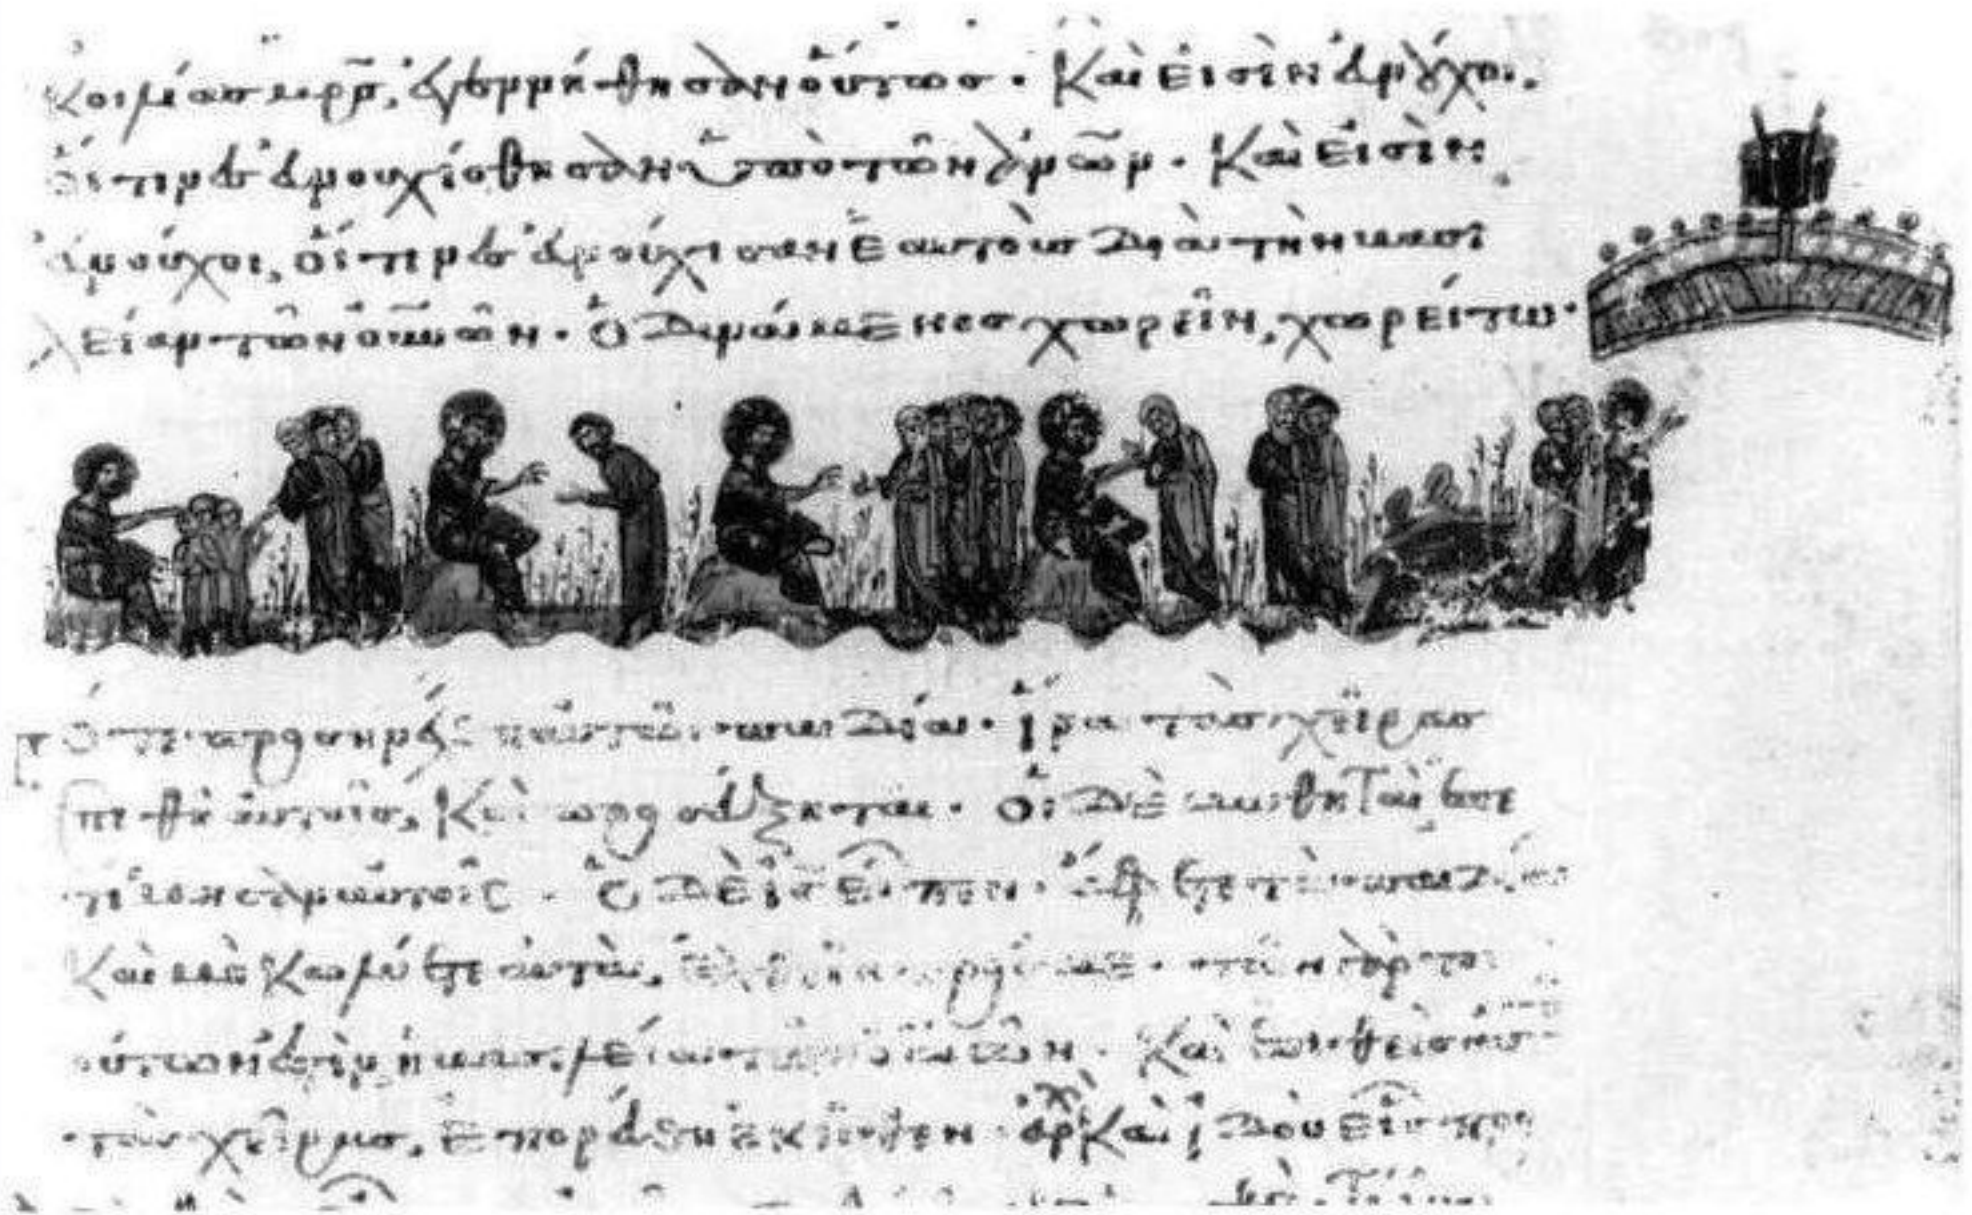 κοιλίασ μρ̅σ, ἐγεννήθησαν οὕτωσ · Καὶ εἰσὶν εὐνοῦχοι,
οἵτινεσ εὐνουχίσθησαν ὑπὸ τῶν ἀνω̅ν · Καὶ εἰσὶν
εὐνοῦχοι, οἵτινεσ εὐνούχισαν ἑαυτοὺσ διὰ τὴν βασι
λείαν τῶν οὐνῶν · ὁ δυνάμενοσ χωρεῖν, χωρείτω ·
Τότε προσηνέχθη αὐτῶ παιδία · ἵνα τὰσ χεῖρασ
ἐπιθῆ αὐτοῖσ, Καὶ προσεύξηται · οἱ δὲ μαθηταὶ ἐπε
τίμησαν αὐτοῖσ · ὁ δὲ ι̅σ εἶπεν · ἄφετε τὰ παιδία
Καὶ μὴ κωλύετε αὐτὰ, ἐλθεῖν πρόσ με · τῶν γὰρ τοι
ούτων ἐστὶν ἡ βασιλεία τῶν οὐνῶν · Καὶ ἐπιθεὶσ αὐτοῖσ
τὰσ χεῖρασ, ἐπορεύθη ἐκεῖθεν · Καὶ ἰδοὺ εἷσ προσ